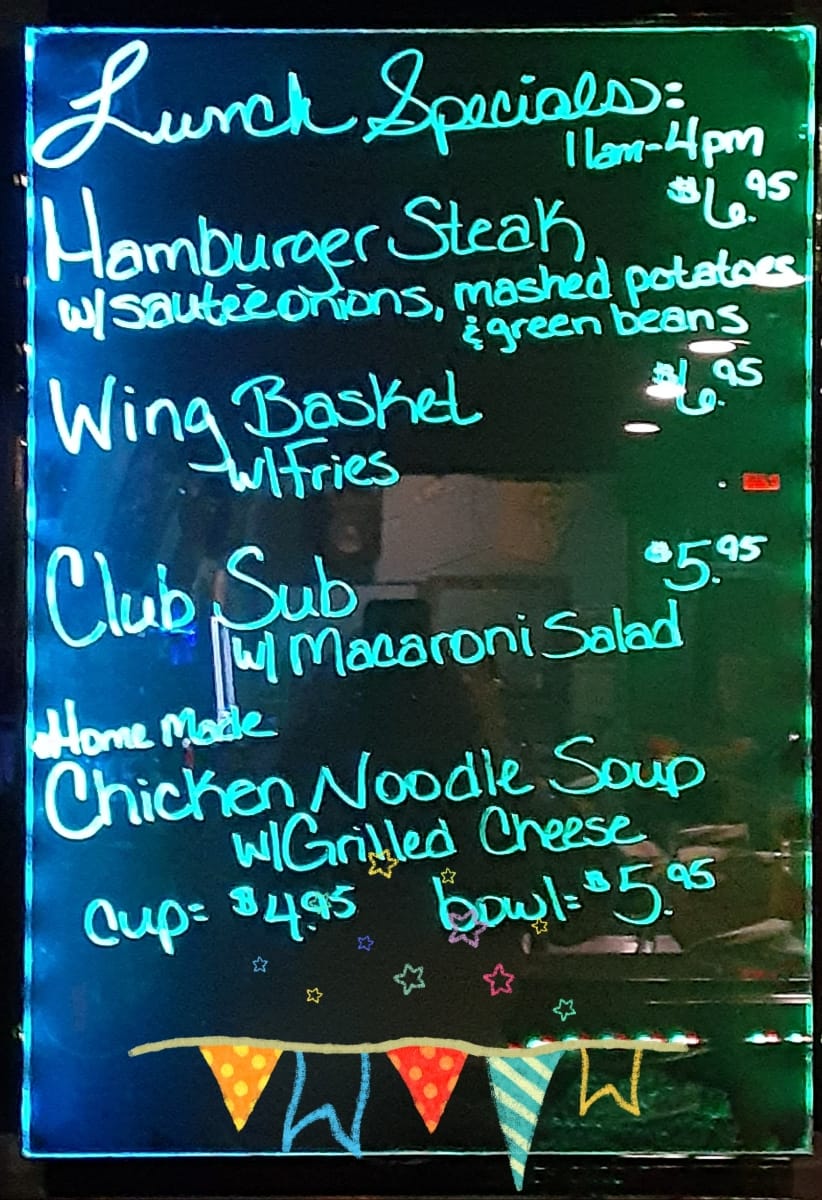 Lunch Specials:
11am-4pm
Hamburger Steak $6.95
w/sautée onions, mashed potatoes
& green beans
Wing Basket $6.95
w/Fries
Club Sub $5.95
w/ Macaroni Salad
Home Made
Chicken Noodle Soup
w/Grilled Cheese
cup= $4.95 bowl= $5.95